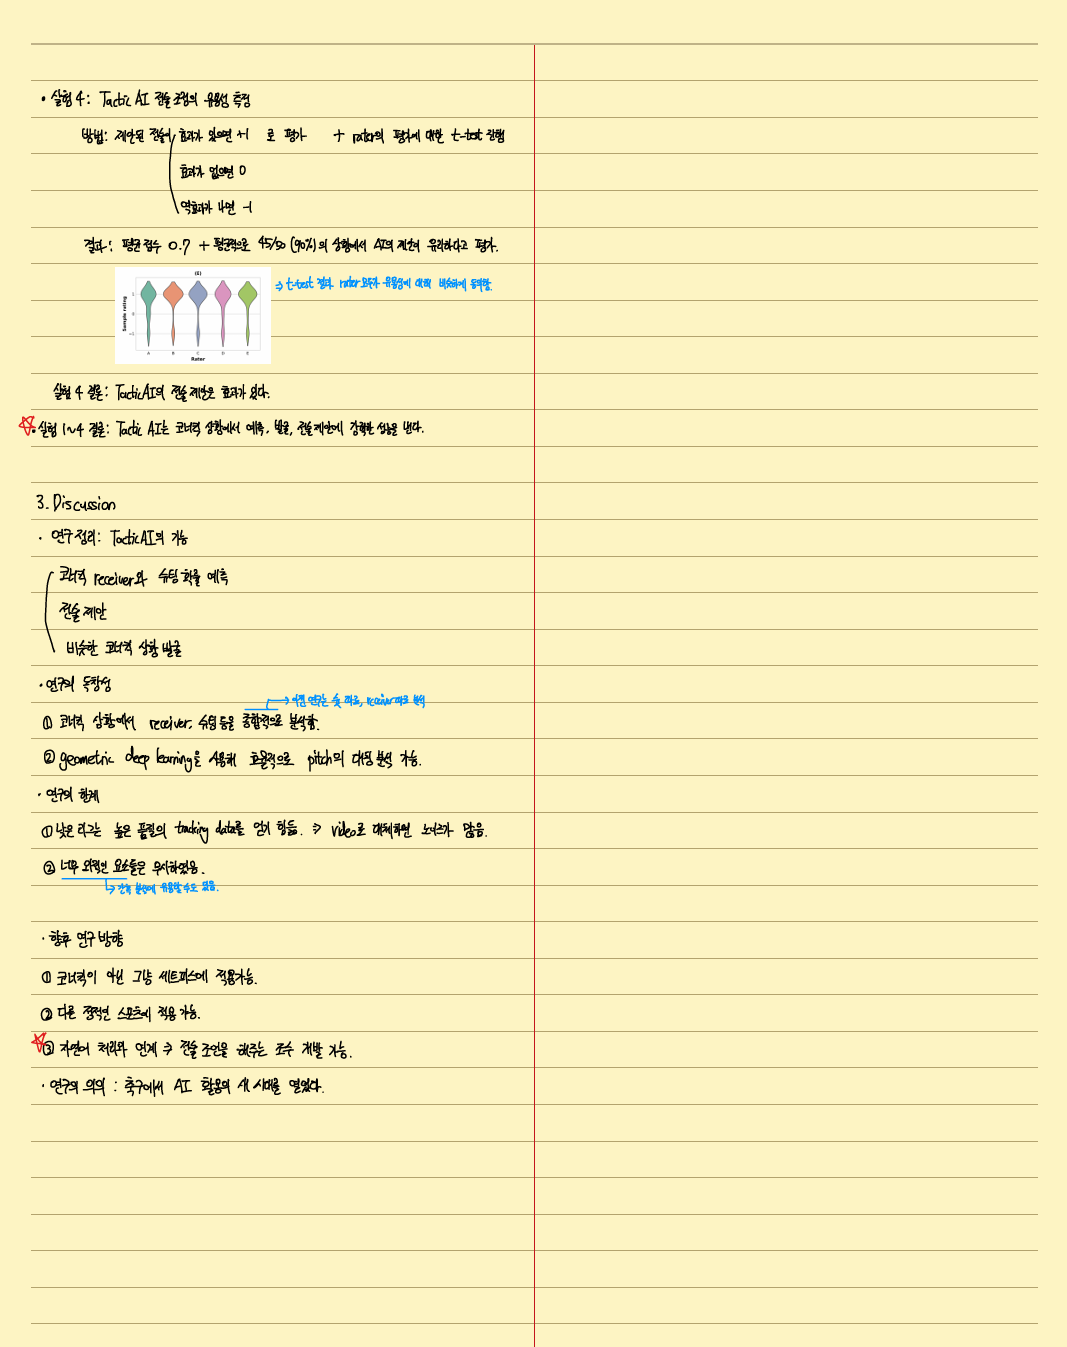 • 실험 4: Tactic AI 전술 조정의 유용성 측정
방법: 제안된 전술이 효과가 있으면 +1 로 평가 + rater의 평가에 대한 t-test 진행
효과가 없으면 0
역효과가 나면 -1
결과: 평균 점수 0.7 + 평균적으로 45/50 (90%)의 상황에서 AI의 제안이 유리하다고 평가.
(E)
⇒ t-test 결과 rater 모두가 유용성에 대해 비슷하게 동의함.
Sample rating
1
0
-1
A B C D E
Rater
실험 4 결론: TacticAI의 전술 제안은 효과가 있다.
• 실험 1~4 결론: Tactic AI는 코너킥 상황에서 예측, 발굴, 전술제안에 강력한 성능을 낸다.
3. Discussion
· 연구 정리: TacticAI의 기능
코너킥 receiver와 슈팅 확률 예측
전술 제안
비슷한 코너킥 상황 발굴
· 연구의 독창성
→ 이전 연구는 슛 따로, receiver 따로 분석
① 코너킥 상황에서 receiver, 슈팅 등을 종합적으로 분석함.
② geometric deep learning을 사용해 효율적으로 pitch의 대칭 분석 가능.
· 연구의 한계
① 낮은 리그는 높은 품질의 tracking data를 얻기 힘듦. ⇒ video로 대체하면 노이즈가 많음.
② 너무 외적인 요소들은 무시하였음.
↳ 전술 분석에 유용할 수도 있음.
· 향후 연구 방향
① 코너킥이 아닌 그냥 세트피스에 적용가능.
② 다른 정적인 스포츠에 적용 가능.
③ 자연어 처리와 연계 ⇒ 전술 조언을 해주는 조수 개발 가능.
· 연구의 의의 : 축구에서 AI 활용의 새 시대를 열었다.